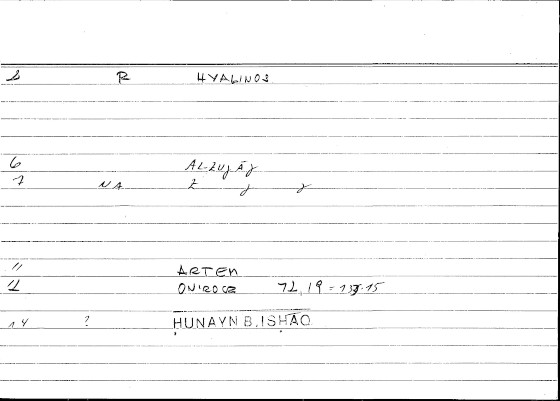 R HYALINOS
6 AL-ZUJĀJ
7 NA Z J J
11 ARTEM
ONIROCR 72,19 = 137.15
14 ? HUNAYN B. ISHĀQ